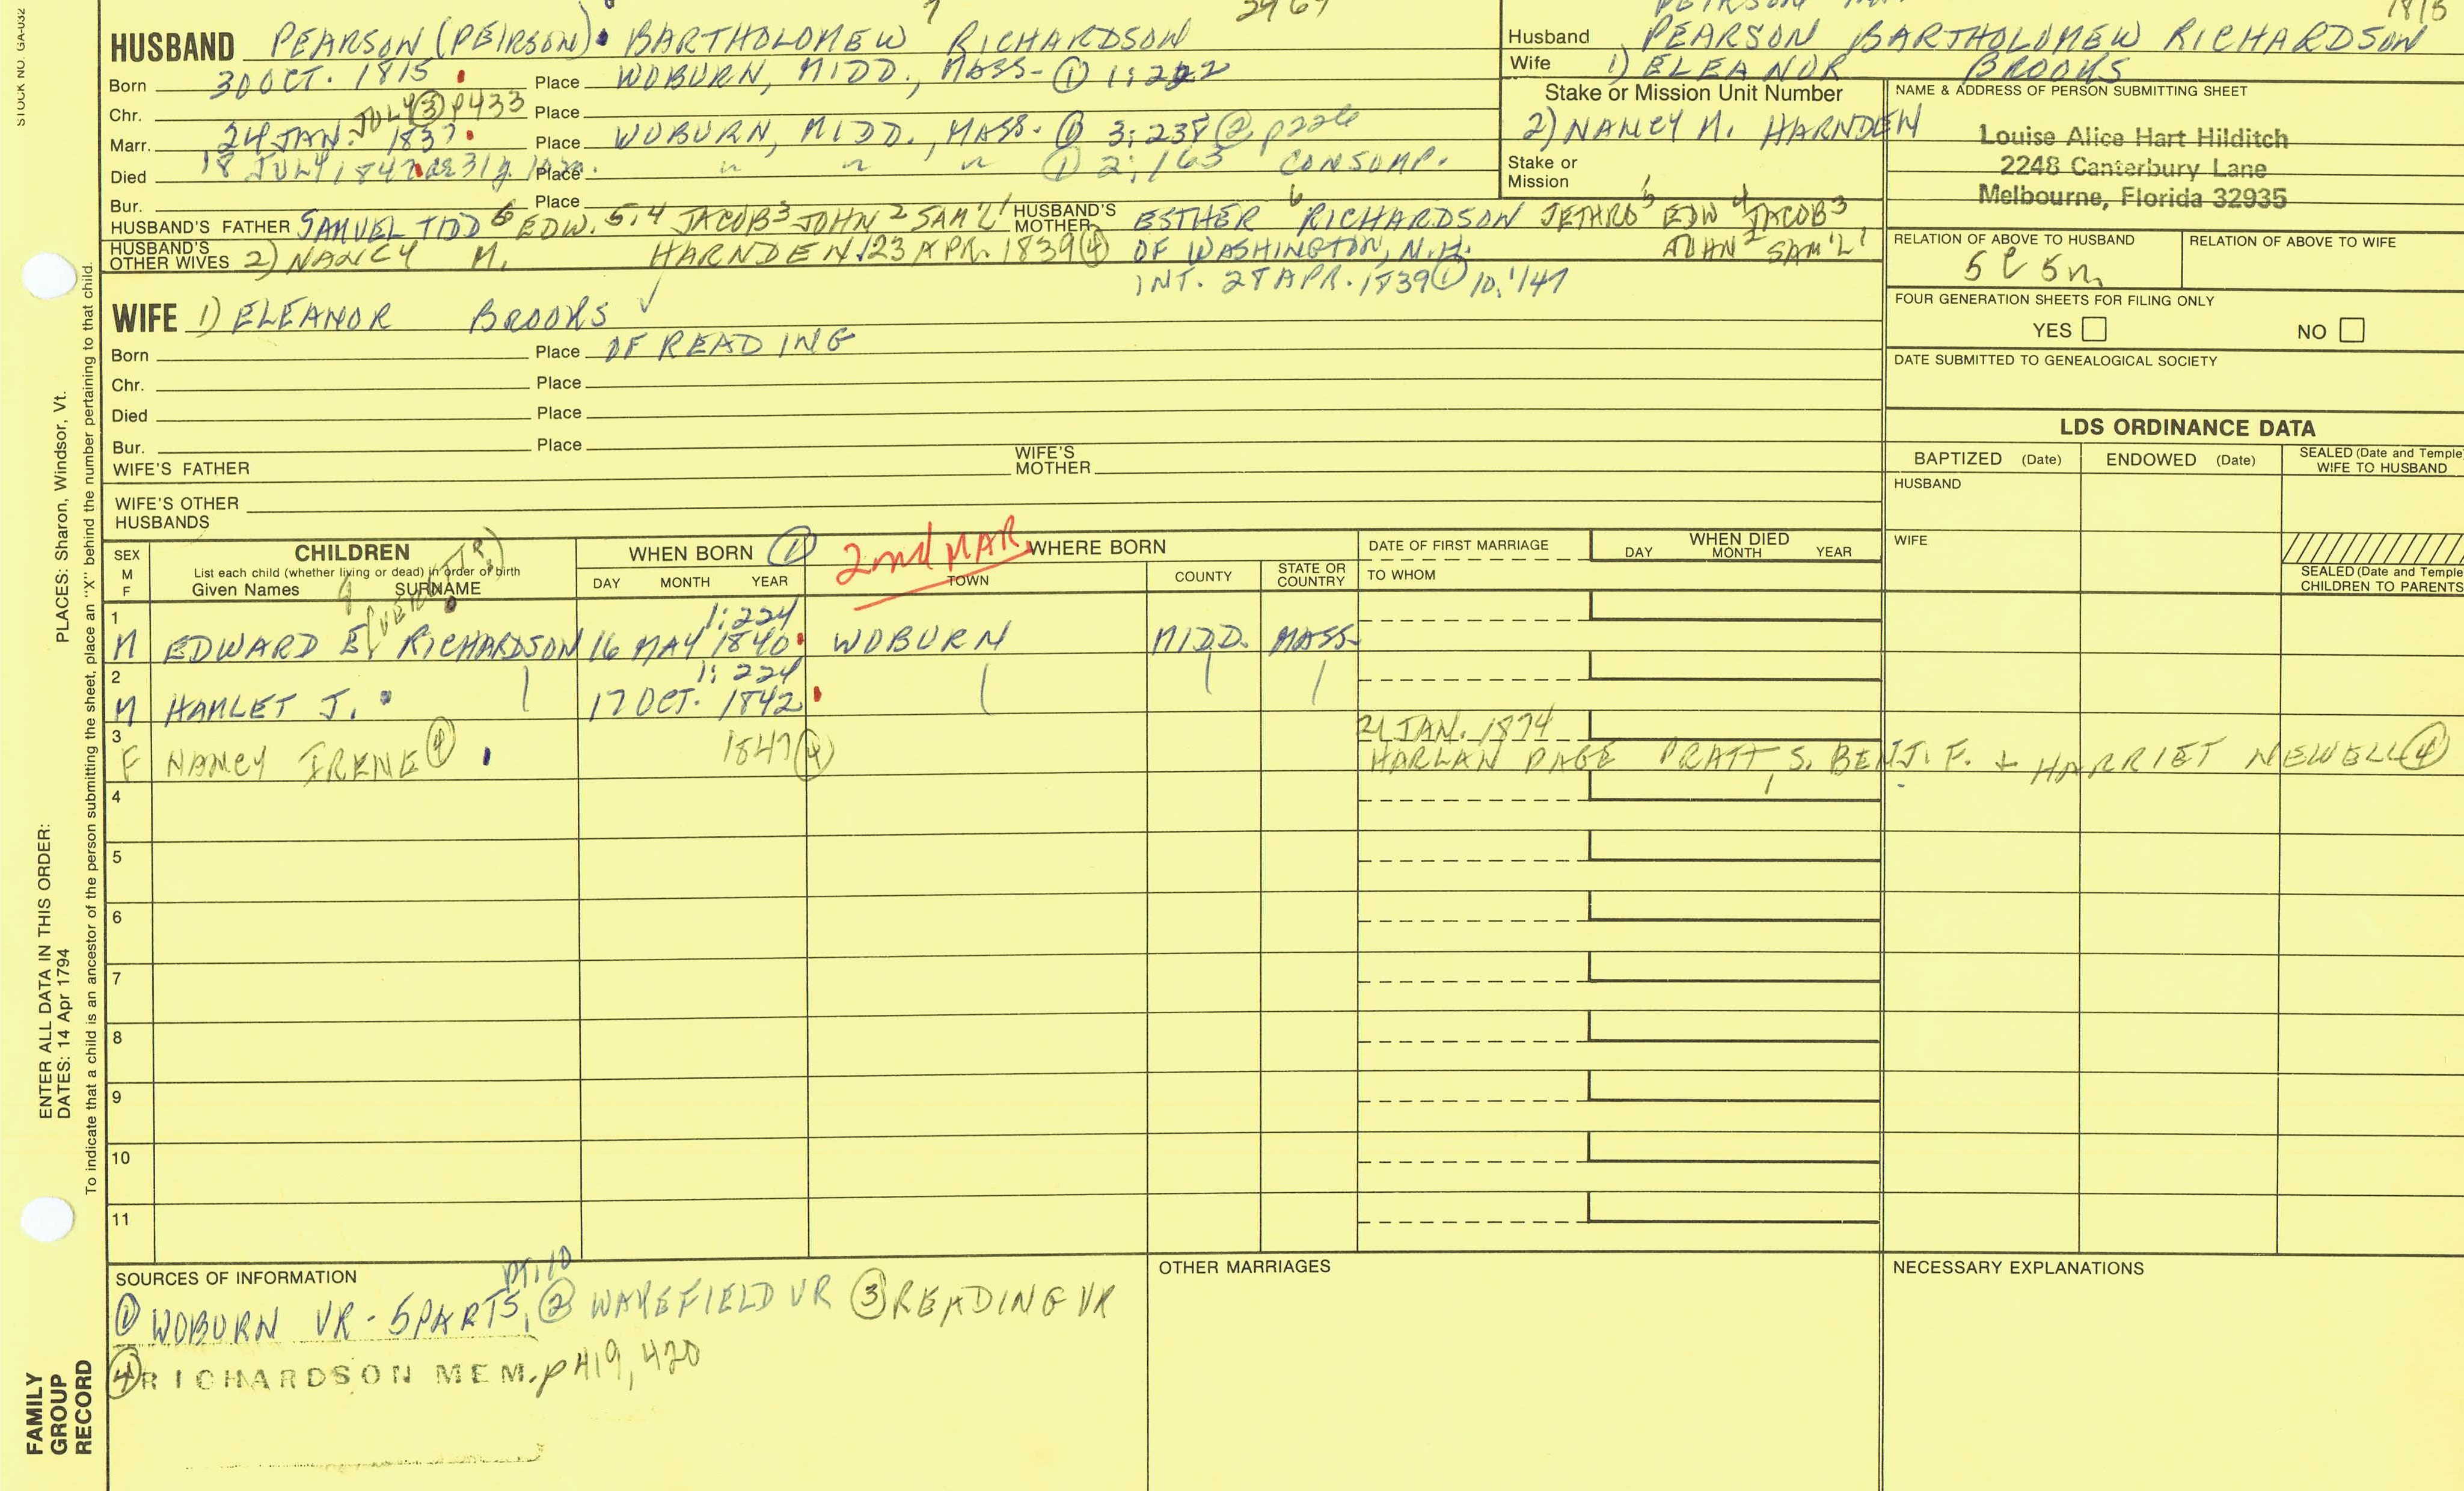 STOCK NO. GA-032
HUSBAND PEARSON (PEIRSON) BARTHOLOMEW RICHARDSON
Born 30 OCT. 1815 Place WOBURN, MIDD., MASS- ① 1:222
Chr. JULY ③ P433 Place
Marr. 24 JAN. 1837 Place WOBURN, MIDD., MASS. ① 3:238 ②
Died 18 JULY 1847 ae 31y. Place " " " ① 2:163 CONSUMP.
Bur. Place
HUSBAND'S FATHER SAMUEL TIDD 6 EDW. 5,4 JACOB 3 JOHN 2 SAM'L 1 HUSBAND'S MOTHER ESTHER 6 RICHARDSON JETHRO 5 EDW 4 JACOB 3
JOHN 2 SAM'L 1
HUSBAND'S OTHER WIVES 2) NANCY M. HARNDEN 23 APR. 1839 ④ OF WASHINGTON, N.H.
INT. 28 APR. 1839 ① 10:147
WIFE 1) ELEANOR BROOKS
Born Place OF READING
Chr. Place
Died Place
Bur. Place
WIFE'S FATHER WIFE'S MOTHER
WIFE'S OTHER HUSBANDS
1815
Husband PEARSON BARTHOLOMEW RICHARDSON
Wife 1) ELEANOR BROOKS
Stake or Mission Unit Number
2) NANCY M. HARNDEN
Stake or Mission
NAME & ADDRESS OF PERSON SUBMITTING SHEET
Louise Alice Hart Hilditch
2248 Canterbury Lane
Melbourne, Florida 32935
RELATION OF ABOVE TO HUSBAND RELATION OF ABOVE TO WIFE
FOUR GENERATION SHEETS FOR FILING ONLY
YES NO
DATE SUBMITTED TO GENEALOGICAL SOCIETY
LDS ORDINANCE DATA
BAPTIZED (Date) ENDOWED (Date) SEALED (Date and Temple) WIFE TO HUSBAND
HUSBAND
WIFE
SEALED (Date and Temple) CHILDREN TO PARENTS
SEX M F
CHILDREN
List each child (whether living or dead) in order of birth
Given Names SURNAME
WHEN BORN ①
DAY MONTH YEAR
2nd MAR.
WHERE BORN
TOWN COUNTY STATE OR COUNTRY
DATE OF FIRST MARRIAGE
TO WHOM
WHEN DIED
DAY MONTH YEAR
1 1:224
M EDWARD E. RICHARDSON 16 MAY 1840 WOBURN MIDD. MASS-
2 1:224
M HAMLET J. 17 OCT. 1842
3 21 JAN. 1874
F NANCY IRENE ④ 1847 ④ HARLAN PAGE PRATT, S. BENJ. F. + HARRIET NEWELL ④
4
5
6
7
8
9
10
11
SOURCES OF INFORMATION
PT. 10
① WOBURN VR - 5 PARTS, ② WAKEFIELD VR ③ READING VR
④ RICHARDSON MEM. p 419, 420
OTHER MARRIAGES
NECESSARY EXPLANATIONS
PLACES: Sharon, Windsor, Vt.
ENTER ALL DATA IN THIS ORDER:
DATES: 14 Apr 1794
To indicate that a child is an ancestor of the person submitting the sheet, place an "X" behind the number pertaining to that child.
FAMILY
GROUP
RECORD